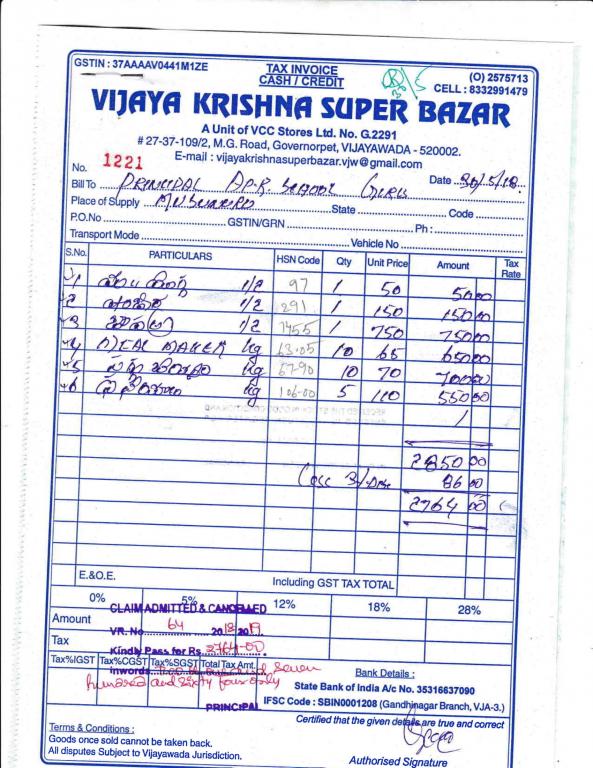 GSTIN : 37AAAAV0441M1ZE
TAX INVOICE
CASH / CREDIT
(O) 2575713
CELL : 8332991479
VIJAYA KRISHNA SUPER BAZAR
A Unit of VCC Stores Ltd. No. G.2291
# 27-37-109/2, M.G. Road, Governorpet, VIJAYAWADA - 520002.
E-mail : vijayakrishnasuperbazar.vjw@gmail.com
No. 1221
Date 30/5/18
Bill To PRINCIPAL A.P.R. SCHOOL GIRLS
Place of Supply State Code
P.O.No GSTIN/GRN Ph :
Transport Mode Vehicle No
S.No. PARTICULARS HSN Code Qty Unit Price Amount Tax Rate
1 1/2 97 1 50 50 00
2 1/2 291 1 150 150 00
3 1/2 1455 1 750 750 00
4 MEAL MAKER kg 63.05 10 65 650 00
5 kg 67-90 10 70 700 00
6 kg 106-00 5 110 550 00
2850 00
86 00
2764 00
E.&O.E. Including GST TAX TOTAL
0% 5% 12% 18% 28%
CLAIM ADMITTED & CANCELLED
Amount
VR. No. 64 2018 2019
Tax
Kindly Pass for Rs 2764-00
Tax%IGST Tax%CGST Tax%SGST Total Tax Amt.
Inwords Two thousand seven
hundred and sixty four only
PRINCIPAL
Bank Details :
State Bank of India A/c No. 35316637090
IFSC Code : SBIN0001208 (Gandhinagar Branch, VJA-3.)
Certified that the given details are true and correct
Terms & Conditions :
Goods once sold cannot be taken back.
All disputes Subject to Vijayawada Jurisdiction.
Authorised Signature